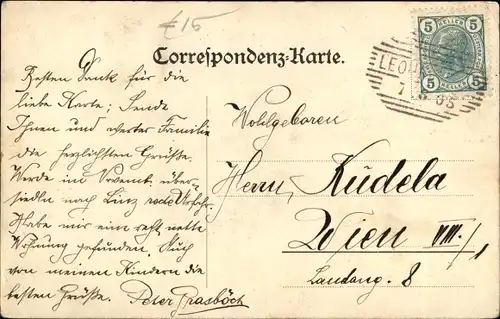 €15
Correspondenz-Karte.
5 HELLER 5
5 HELLER 5
LEO
7 8 05
Besten Dank für die
liebe Karte; Sende
Ihnen und werter Familie
die herzlichsten Grüße.
Werde im Novemb. über-
siedeln nach Linz resp. Urfahr.
Habe mir eine recht nette
Wohnung gefunden. Auch
von meinen Kindern die
besten Grüße. Peter Grasböck
Wohlgeboren
Herrn Kudela
Wien VIII./1
Landong. 8